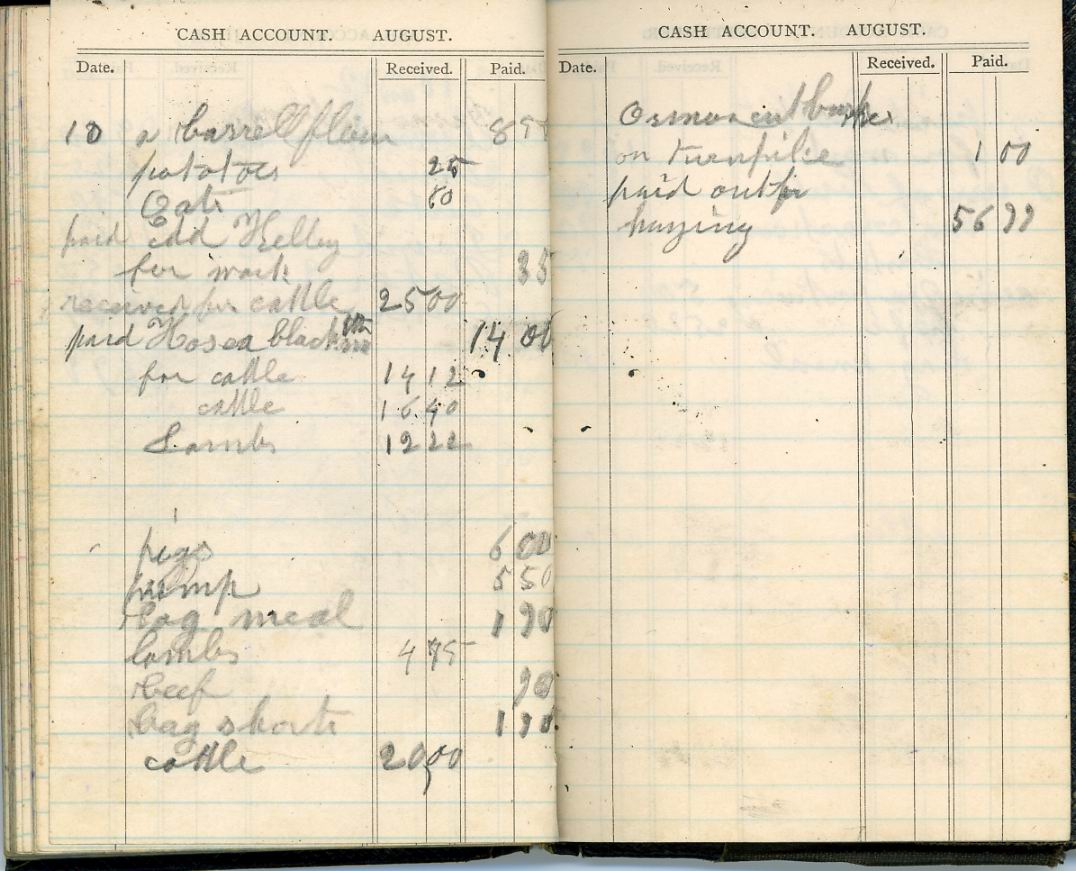 CASH ACCOUNT. AUGUST.
Date. Received. Paid.
10 a barrell flour 8
potatoes 25
Oats 60
paid Edd Kelley
for work 35
received for cattle 25 00
paid Hosea black 14 00
for cattle 14 12
cattle 16 40
Lambs 12 22
pigs 6 00
pump 5 50
bag meal 1
lambs 4 75
beef
bag shorts 1
cattle 20,00
CASH ACCOUNT. AUGUST.
Date. Received. Paid.
on turnpike 1 00
paid out for
haying 56